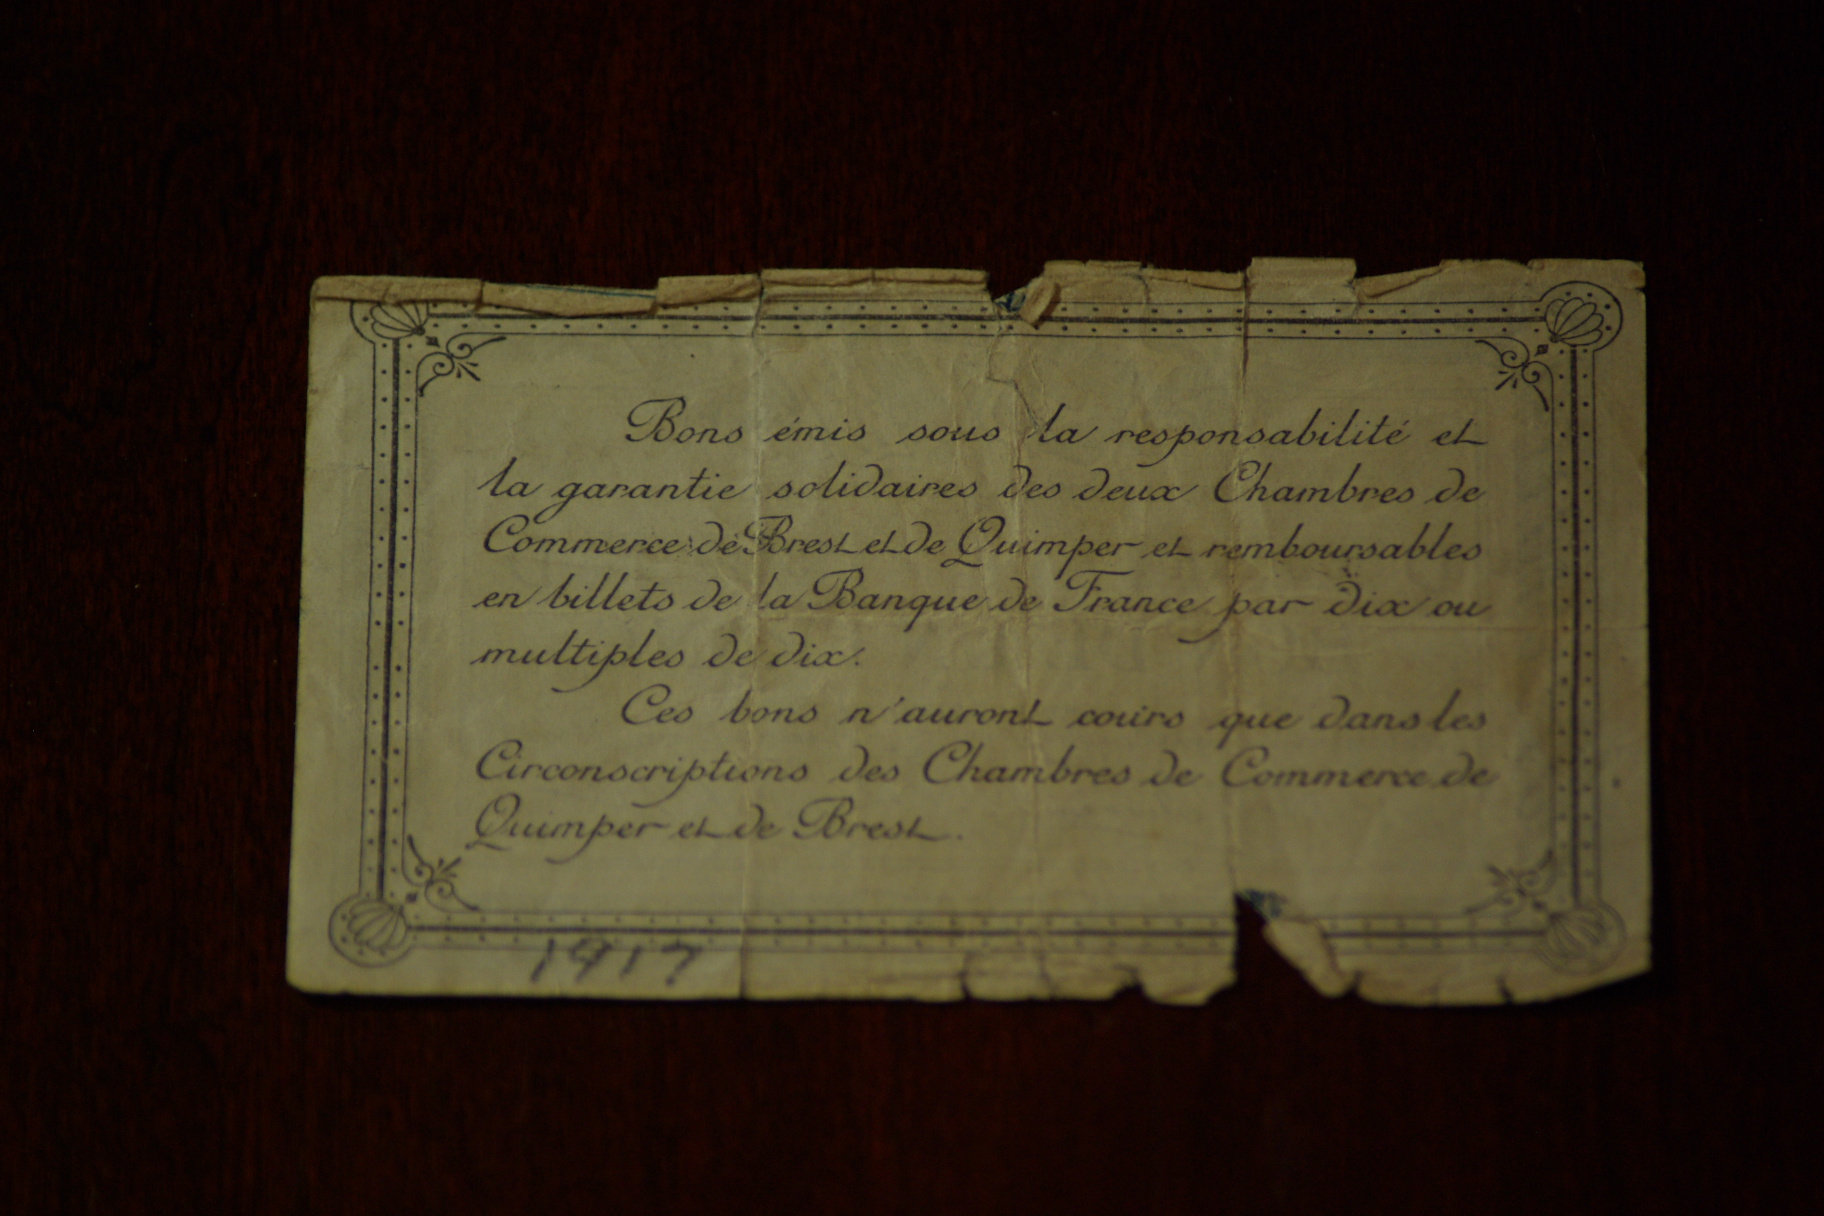 Bons émis sous la responsabilité et
la garantie solidaires des deux Chambres de
Commerce de Brest et de Quimper et remboursables
en billets de la Banque de France par dix ou
multiples de dix.
Ces bons n'auront cours que dans les
Circonscriptions des Chambres de Commerce de
Quimper et de Brest.
1917